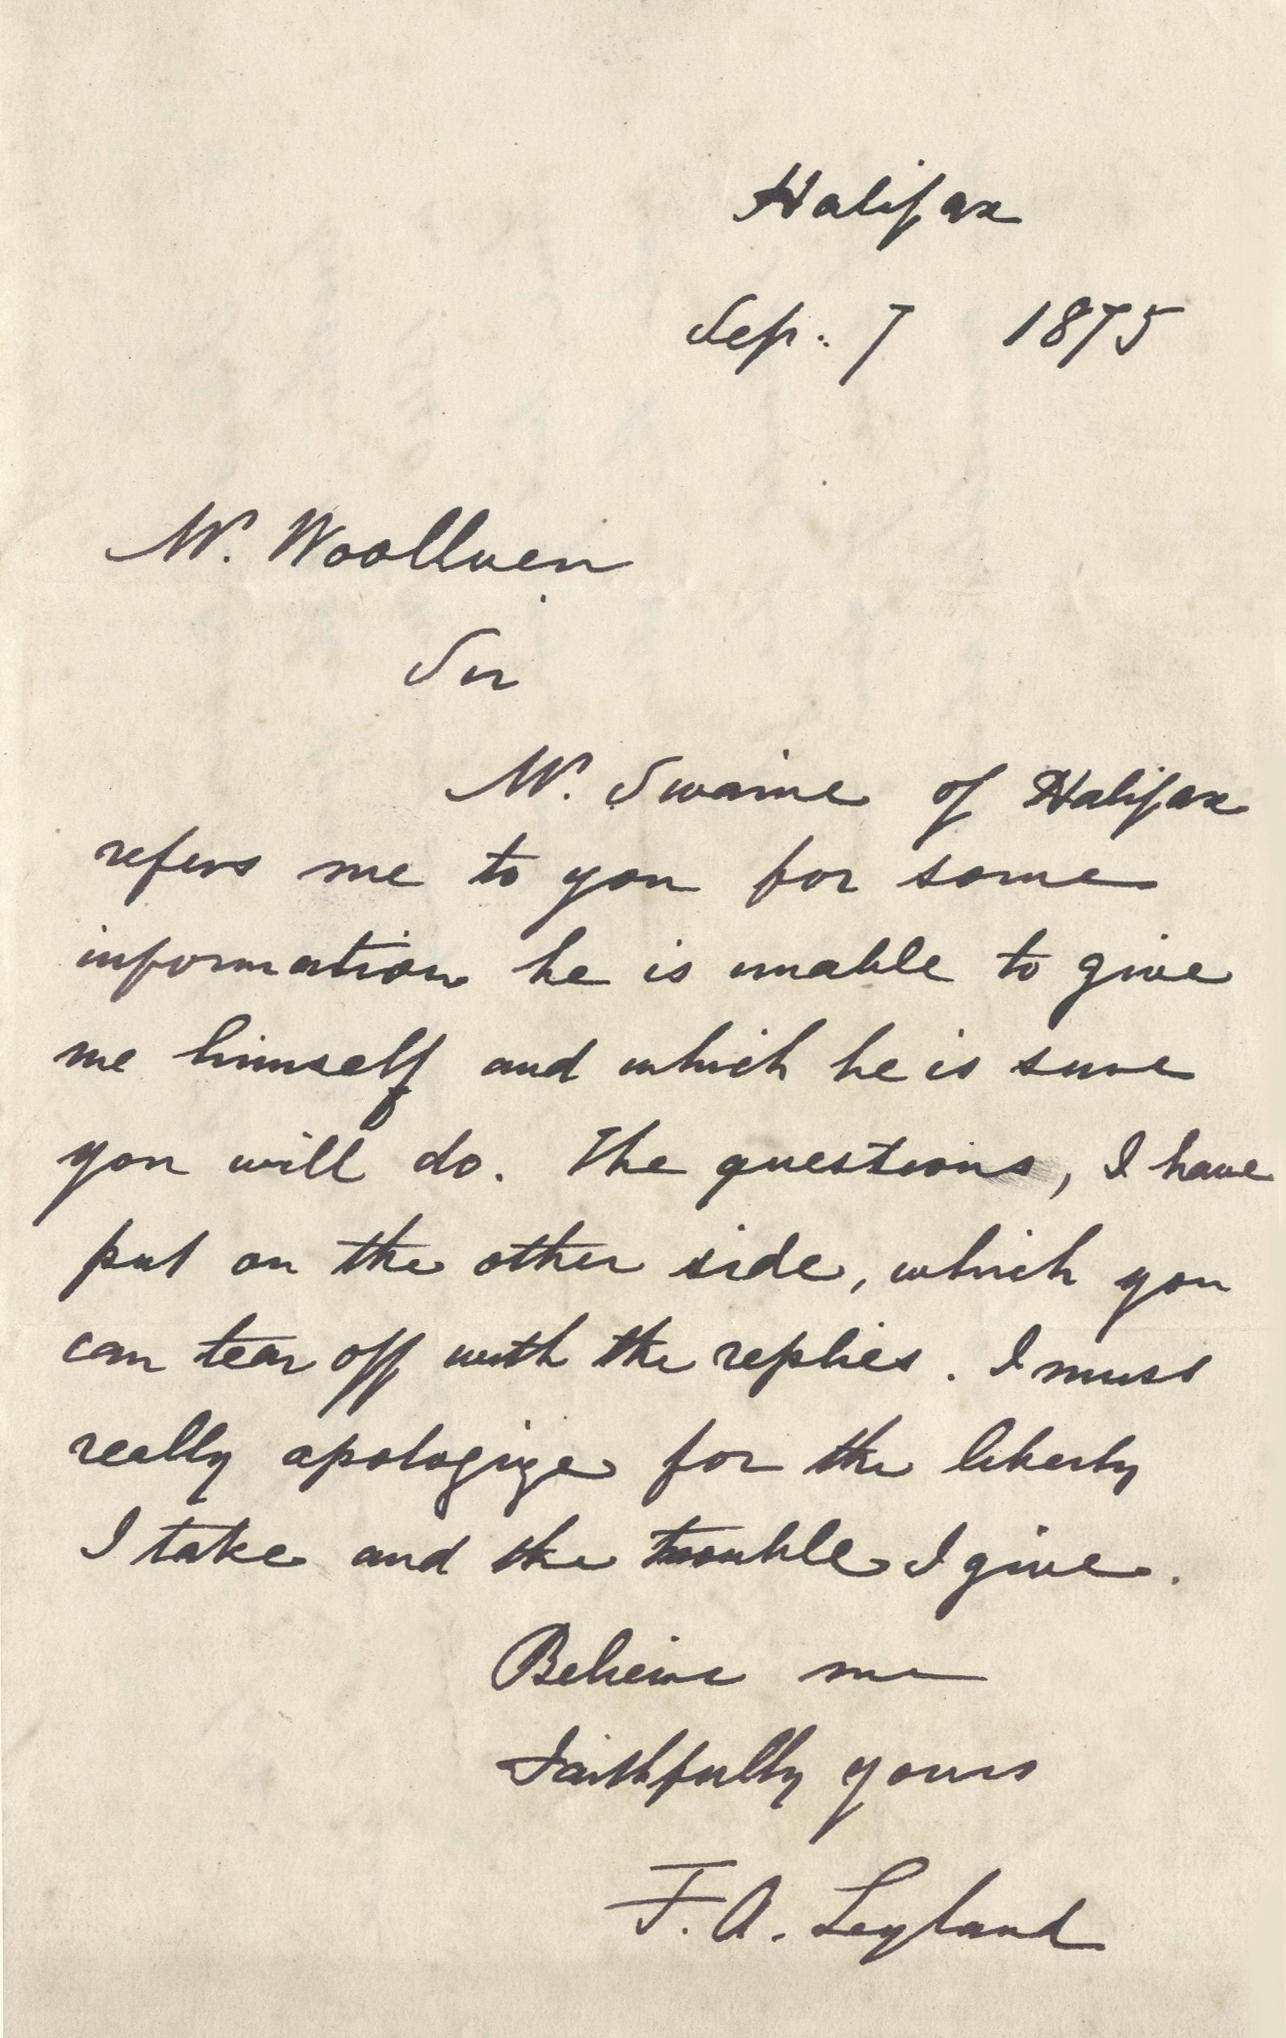 Halifax
Sep. 7 1875
Mr. Woollven
Sir
Mr. Swaine of Halifax
refers me to you for some
information he is unable to give
me himself and which he is sure
you will do. The questions, I have
put on the other side, which you
can tear off with the replies. I must
really apologize for the liberty
I take and the trouble I give.
Believe me
Faithfully yours
F. A. Leyland